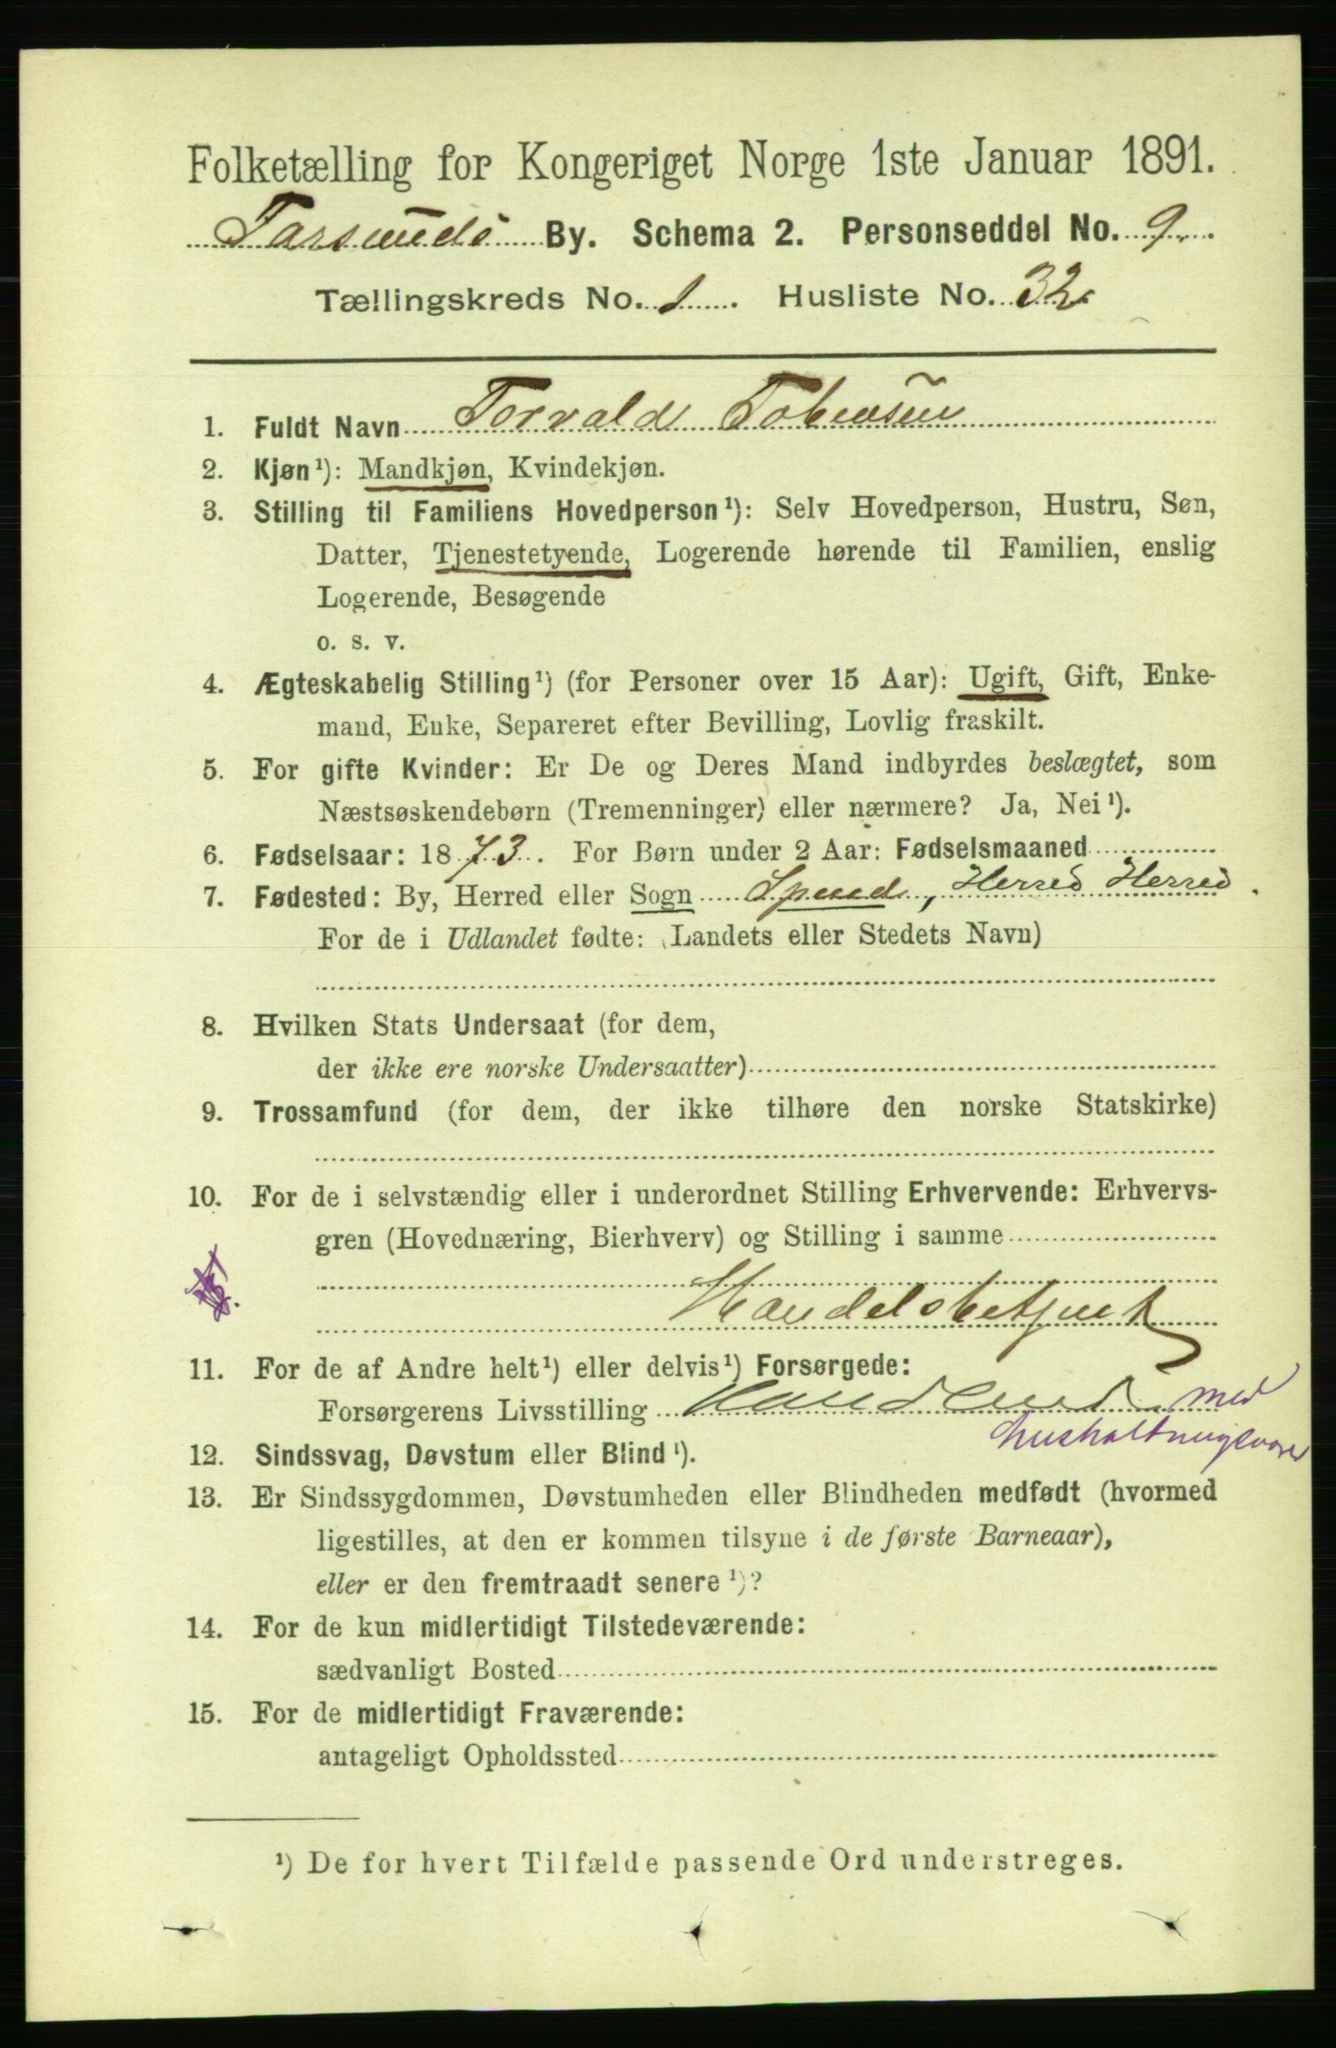 Folketælling for Kongeriget Norge 1ste Januar 1891.
Farsunds By. Schema 2. Personseddel No. 9.
Tællingskreds No. 1. Husliste No. 32
1. Fuldt Navn Torvald Tobiassen
2. Kjøn¹): Mandkjøn, Kvindekjøn.
3. Stilling til Familiens Hovedperson¹): Selv Hovedperson, Hustru, Søn,
Datter, Tjenestetyende, Logerende hørende til Familien, enslig
Logerende, Besøgende
o. s. v.
4. Ægteskabelig Stilling¹) (for Personer over 15 Aar): Ugift, Gift, Enke-
mand, Enke, Separeret efter Bevilling, Lovlig fraskilt.
5. For gifte Kvinder: Er De og Deres Mand indbyrdes beslægtet, som
Næstsøskendebørn (Tremenninger) eller nærmere? Ja, Nei¹).
6. Fødselsaar: 1873. For Børn under 2 Aar: Fødselsmaaned
7. Fødested: By, Herred eller Sogn Spind, Herred Herred.
For de i Udlandet fødte: (Landets eller Stedets Navn)
8. Hvilken Stats Undersaat (for dem,
der ikke ere norske Undersaatter)
9. Trossamfund (for dem, der ikke tilhøre den norske Statskirke)
10. For de i selvstændig eller i underordnet Stilling Erhvervende: Erhvervs-
gren (Hovednæring, Bierhverv) og Stilling i samme
Handelsbetjent
11. For de af Andre helt¹) eller delvis¹) Forsørgede:
Forsørgerens Livsstilling Handlende med
husholtningsvarer
12. Sindssvag, Døvstum eller Blind¹).
13. Er Sindssygdommen, Døvstumheden eller Blindheden medfødt (hvormed
ligestilles, at den er kommen tilsyne i de første Barneaar),
eller er den fremtraadt senere¹)?
14. For de kun midlertidigt Tilstedeværende:
sædvanligt Bosted
15. For de midlertidigt Fraværende:
antageligt Opholdssted
¹) De for hvert Tilfælde passende Ord understreges.